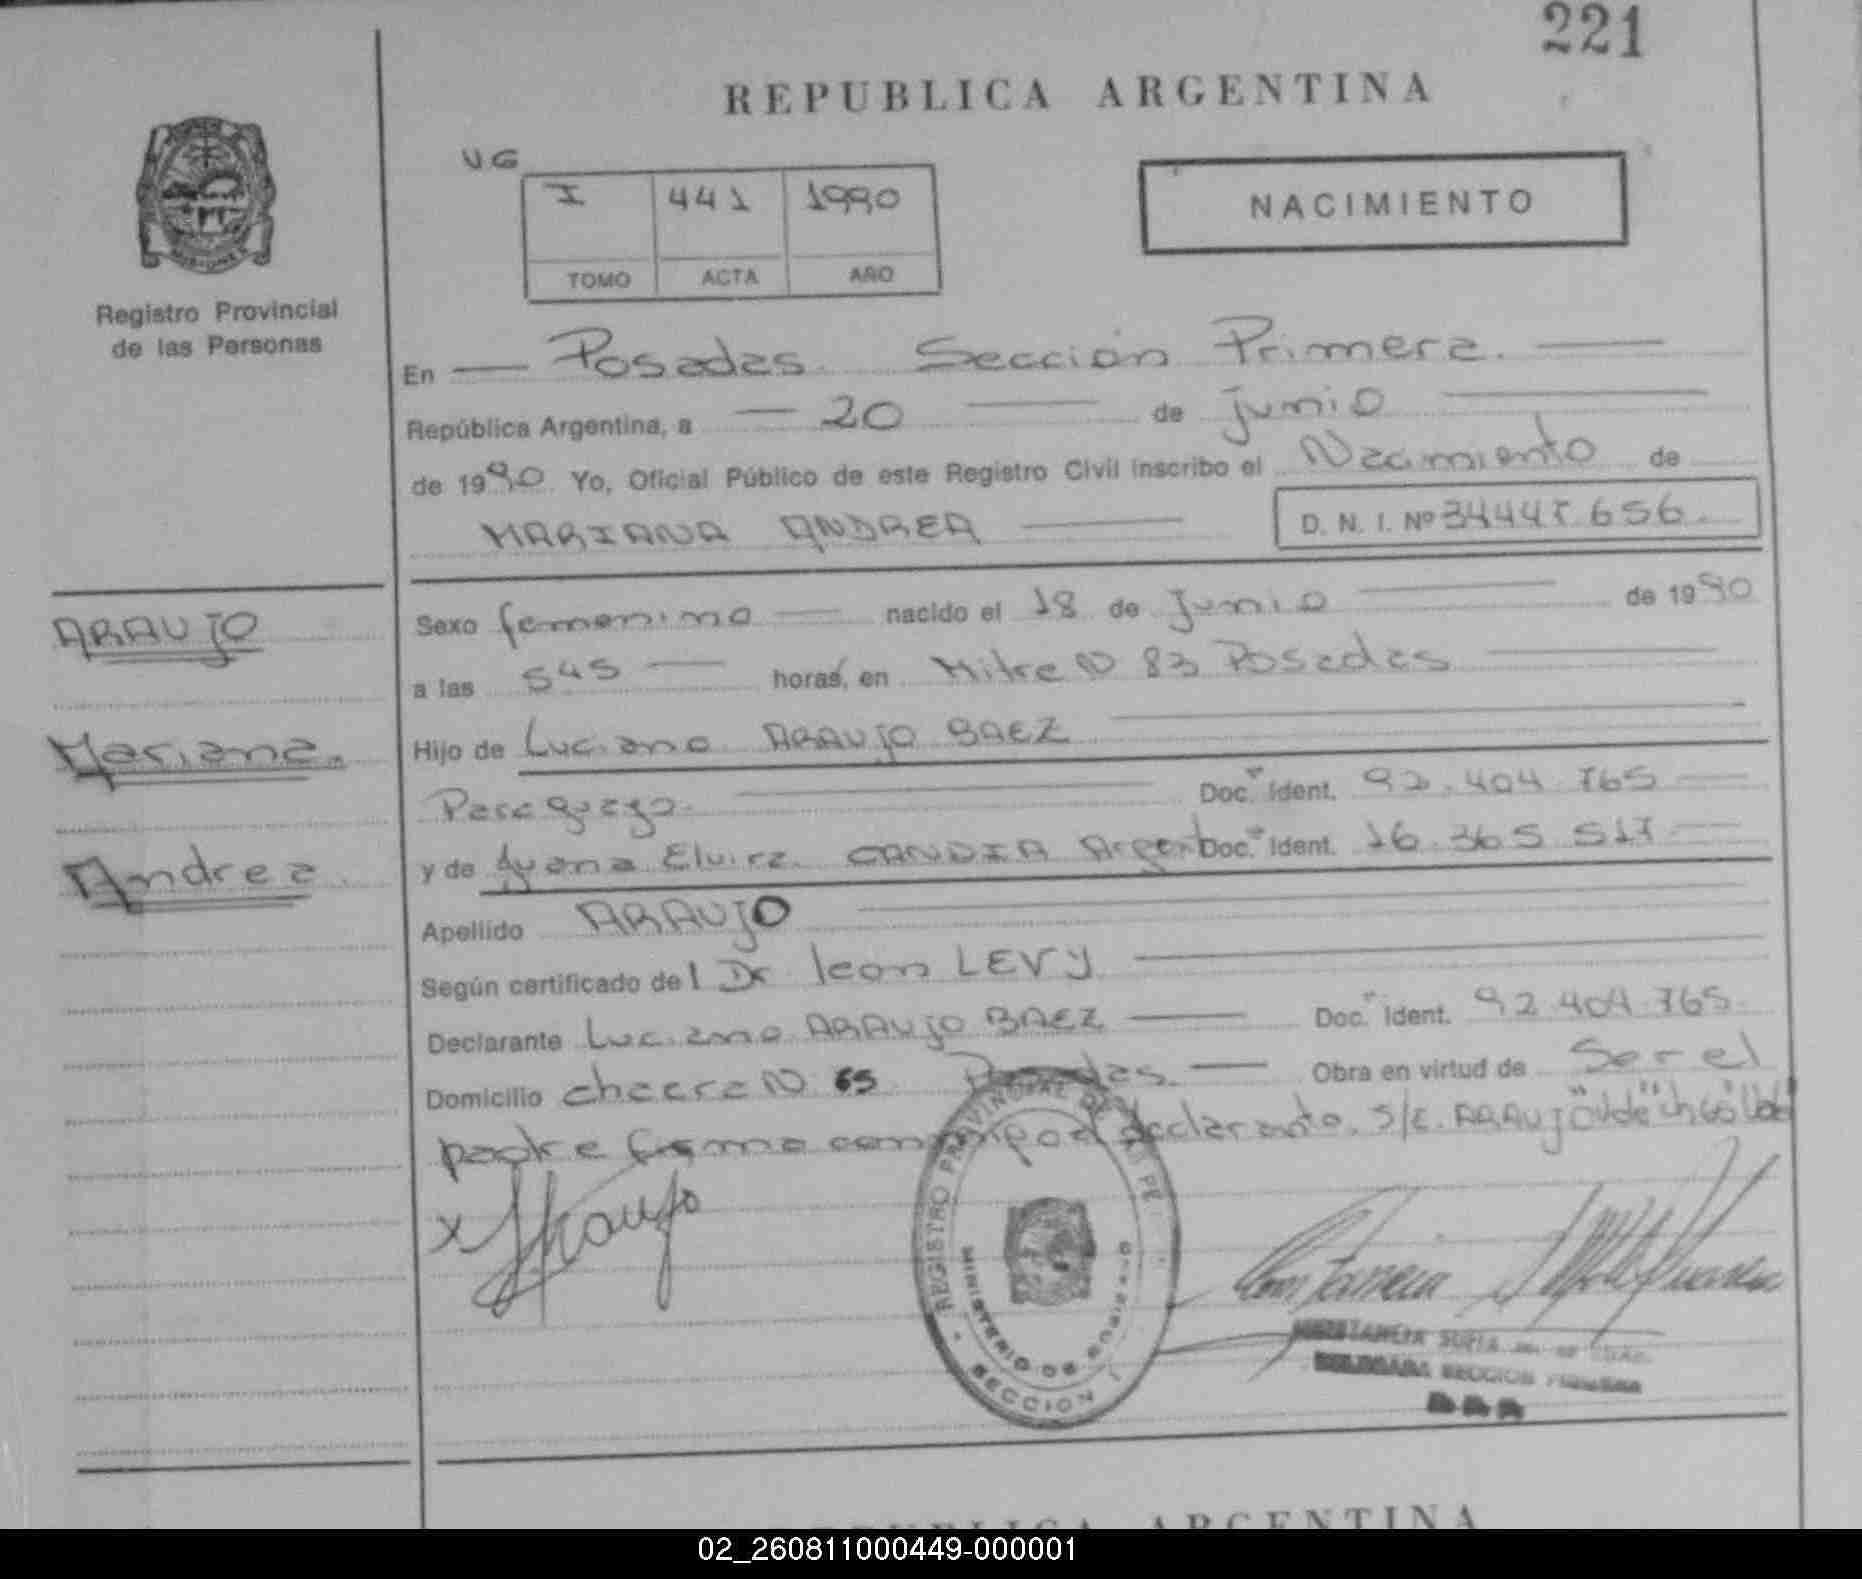 221
REPUBLICA ARGENTINA
VG
I 441 1990
TOMO ACTA AÑO
NACIMIENTO
Registro Provincial
de las Personas
En Posadas Sección Primera.
República Argentina, a 20 de junio
de 1990 Yo, Oficial Público de este Registro Civil inscribo el Nacimiento de
MARIANA ANDREA
D. N. I. Nº 34447.656.
ARAUJO
Mariana.
Andrea.
Sexo femenino nacido el 18 de Junio de 1990
a las 5 45 horas, en Mitre N 83 Posadas
Hijo de Luciano ARAUJO BAEZ
Paraguayo. Doc. Ident. 92.404.765
y de Elvira CANDIA Argent Doc. Ident. 16.365.517
Apellido ARAUJO
Según certificado del Dr leon LEVY
Declarante Luciano ARAUJO BAEZ Doc. Ident. 92.404.765.
Domicilio chacra N 65 Posadas. Obra en virtud de Ser el
padre firma declarante. S/c. ARAUJO "Vale"
x Araujo
REGISTRO PROVINCIAL DE
MINISTERIO DE GOBIERNO
SECCION
SECCION PRIMERA
REPUBLICA ARGENTINA
02_260811000449-000001